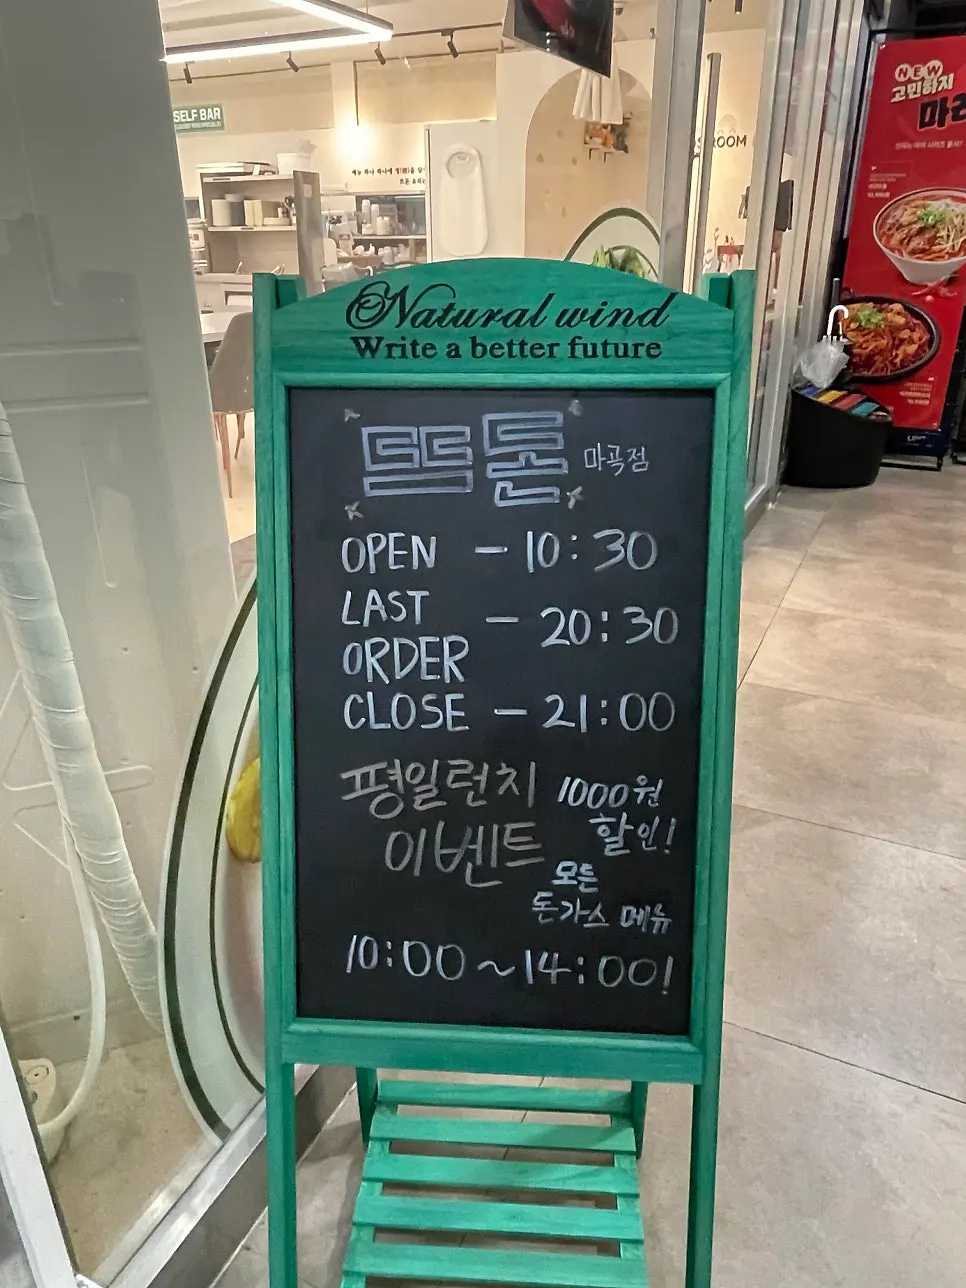 SELF BAR
ROOM
NEW
고민하지
Natural wind
Write a better future
뜸돈 마곡점
OPEN - 10:30
LAST
ORDER - 20:30
CLOSE - 21:00
평일런치 1000원
이벤트 할인!
모든
돈가스 메뉴
10:00 ~ 14:00!